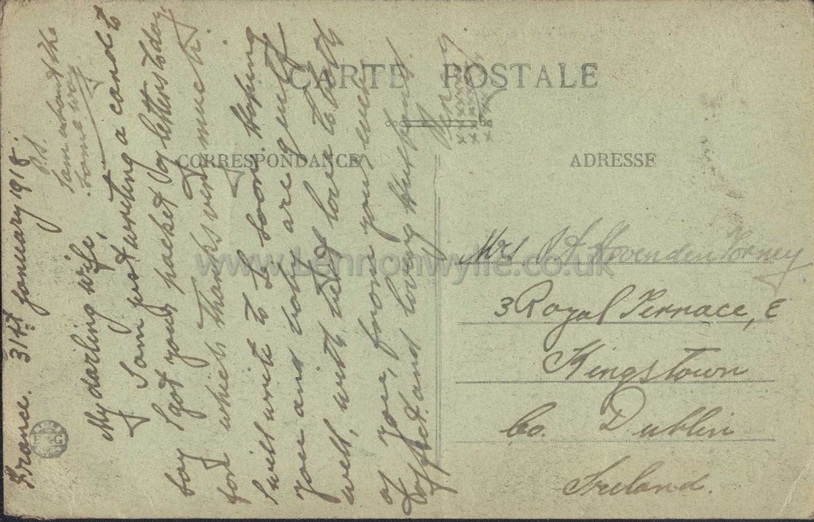 CARTE POSTALE
CORRESPONDANCE
ADRESSE
France. 31st January 1918.
My darling wife,
I am just writing a card to
say I got your packet of letters today
for which thanks very much.
I will write to be soon. Hoping
you and baby are quite
well, with best love to both
of you, from your ever
affect. and loving husband.
P.S.
I am about the
same way
xxxxx
xxxxx
xxx
Mrs Hovenden
3 Royal Terrace, E
Kingstown
Co. Dublin
Ireland.
www.Lennonwylie.co.uk